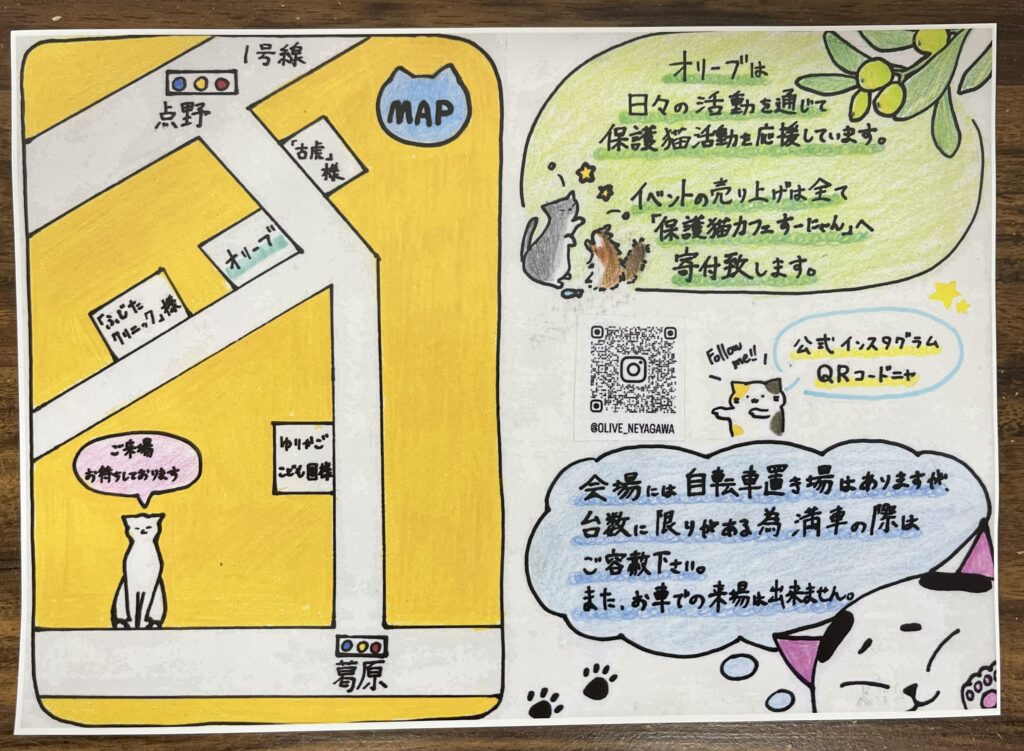 1号線
点野
MAP
「古虎」
様
オリーブ
「ふじた
クリニック」様
ゆりかご
こども園様
ご来場
お待ちしております
葛原
オリーブは
日々の活動を通じて
保護猫活動を応援しています。
イベントの売り上げは全て
「保護猫カフェすーにゃん」へ
寄付致します。
@OLIVE_NEYAGAWA
Follow
me!!
公式インスタグラム
QRコードニャ
会場には自転車置き場はありますが、
台数に限りがある為満車の際は
ご容赦下さい。
また、お車での来場は出来ません。